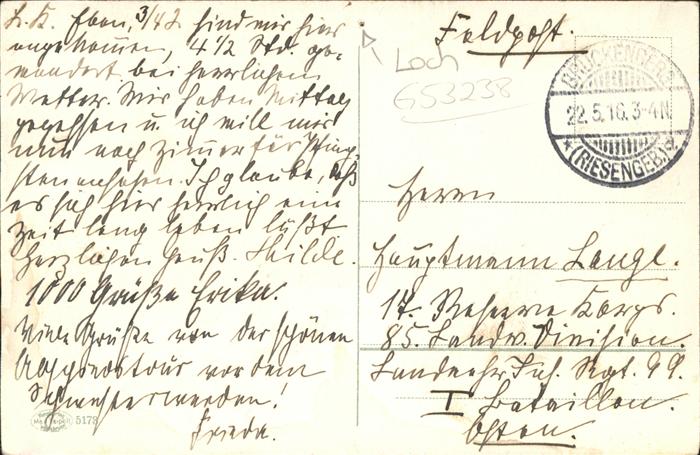 L. K. Eben, 3/42 sind wir hier
angekommen, 4 1/2 Std. ge-
wandert bei herrlichem
Wetter. Wir haben Mittag
gegessen u. ich will mir
nun noch Zimmer für Pfing-
sten ansehen. Ich glaube, daß
es sich hier herrlich eine
Zeit lang leben läßt.
Herzlichen Gruß. Hilde.
1000 Grüße Erika.
Viele Grüße von der schönen
Abschiedstour vor dem
Schwesterwerden!
Frieda.
5173
Feldpost.
Loch
G53238
BRÜCKENBERG
22.5.16.3-4N
*(RIESENGEB.)
Herrn
Hauptmann Lange.
17. Reserve Korps.
85. Landw. Division.
Landwehr Inf. Regt. 99.
I Bataillon.
Osten.